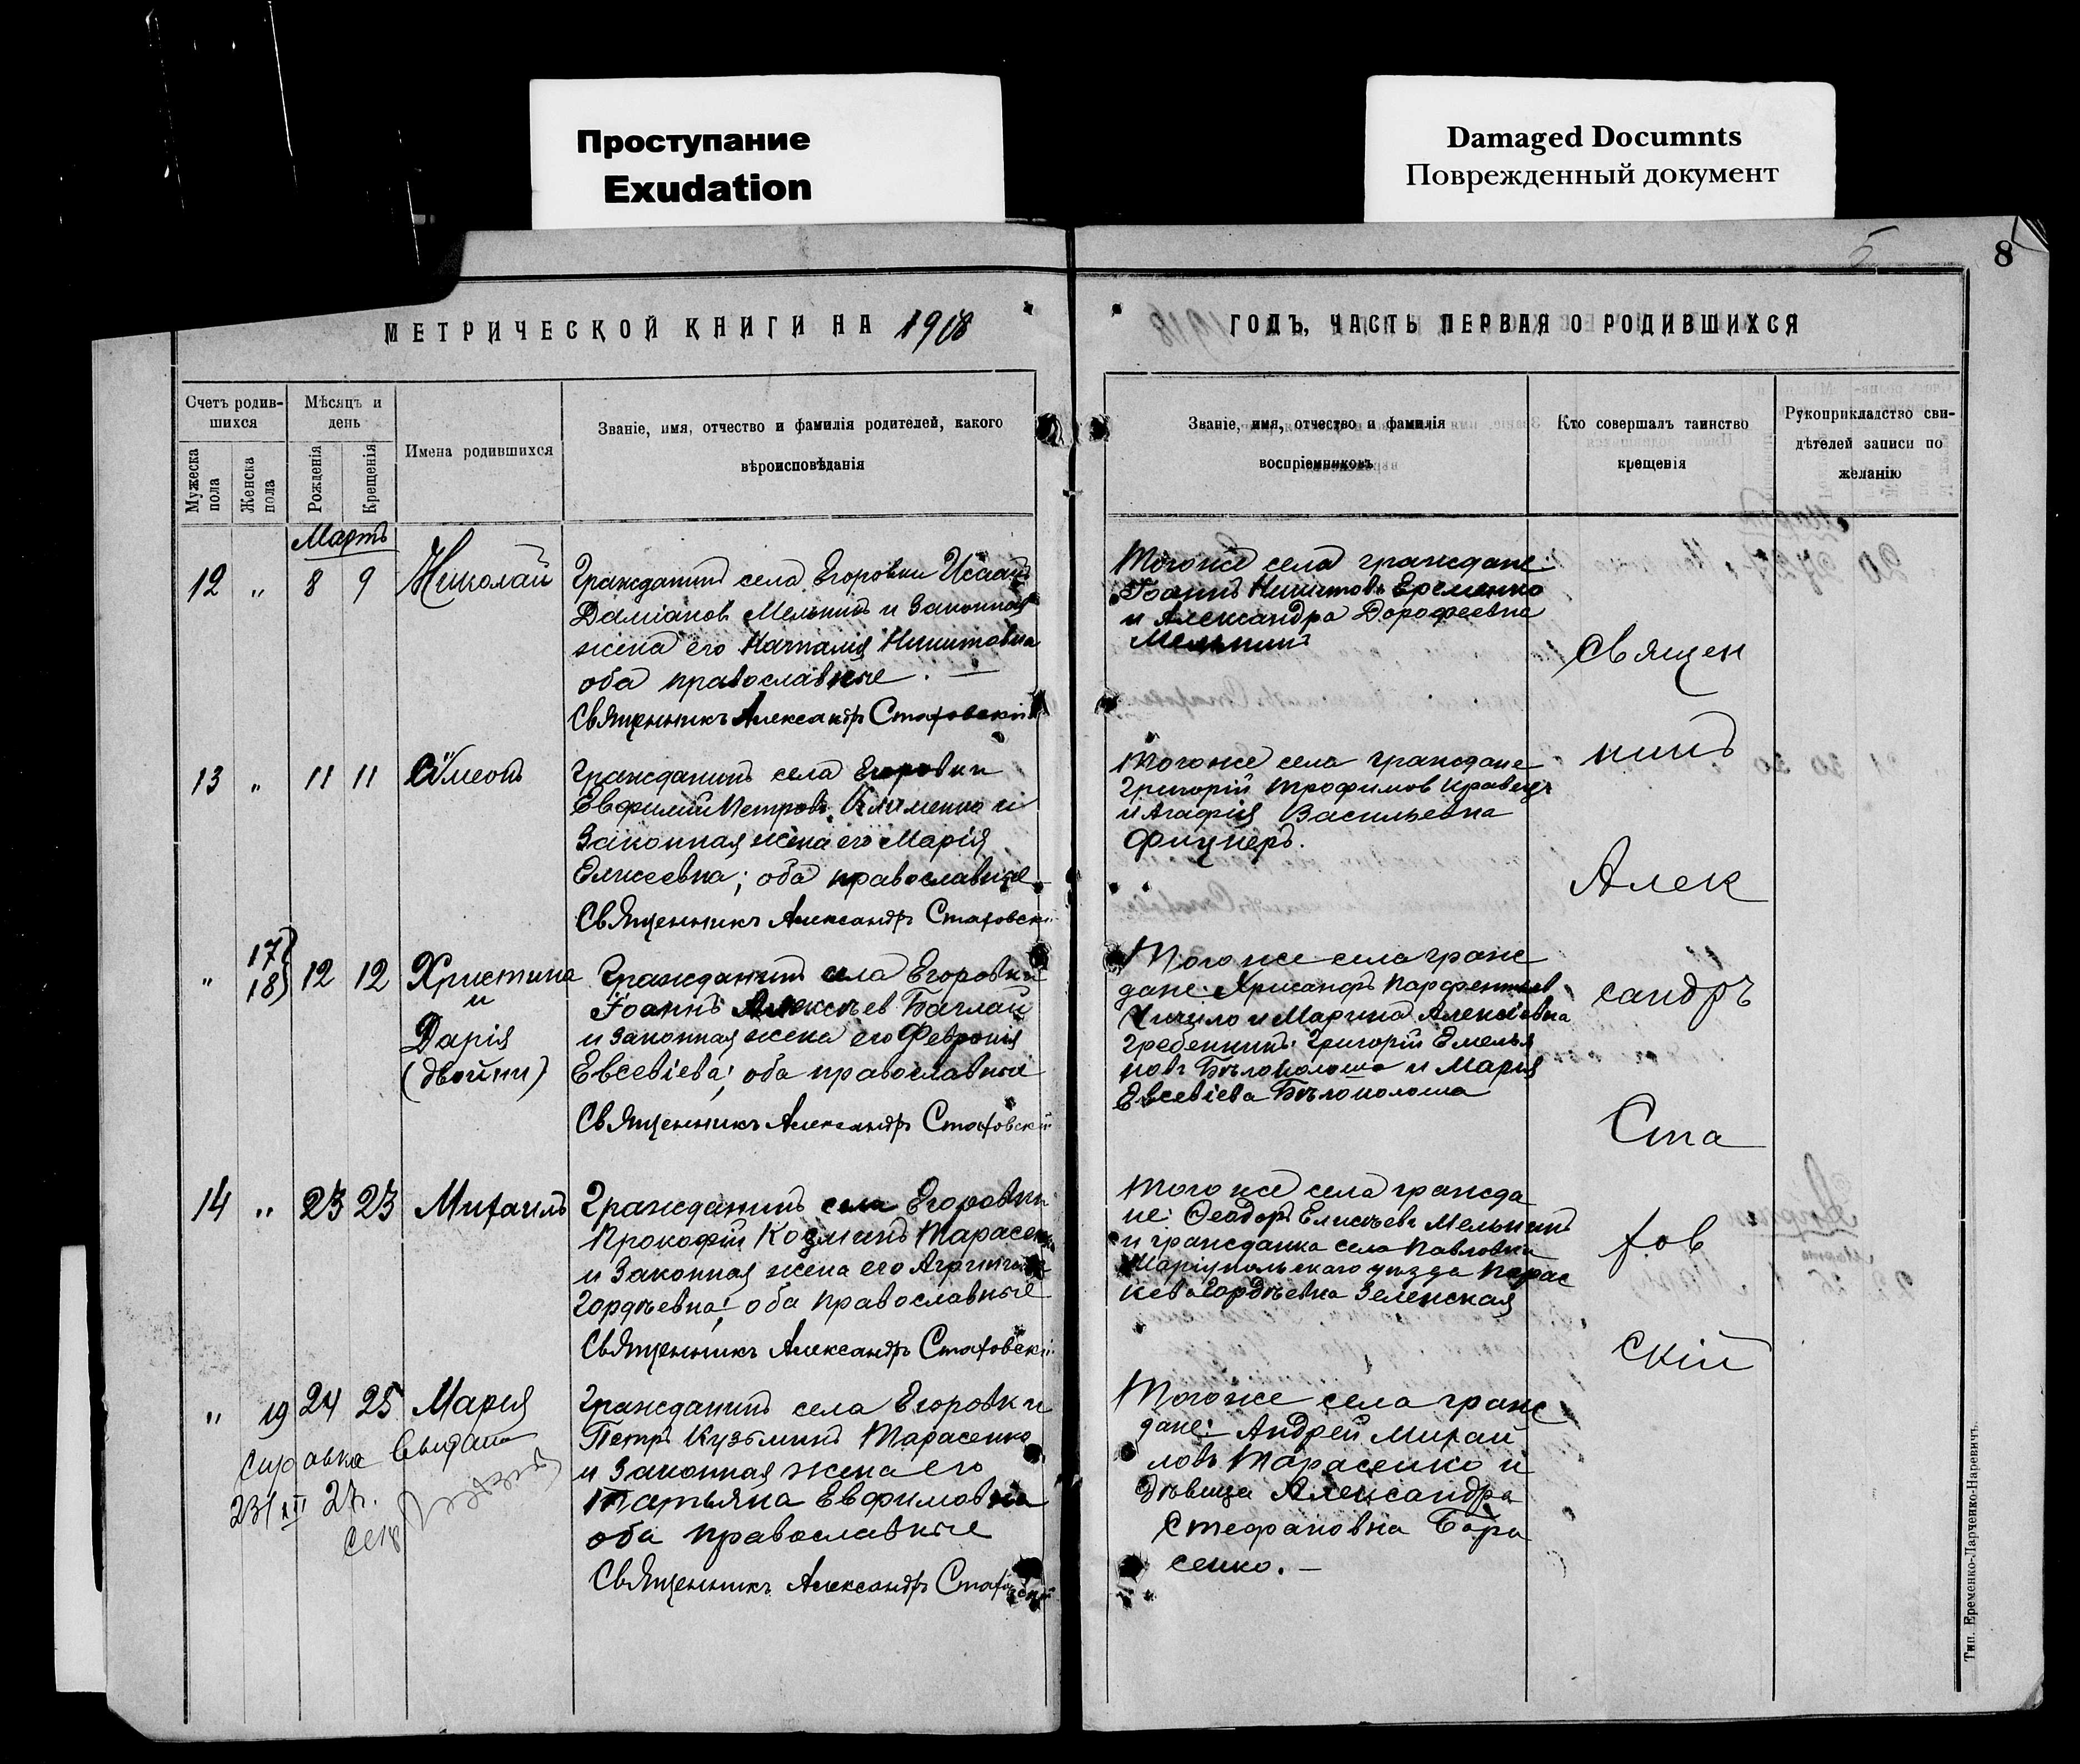 Проступание
Exudation
Damaged Documnts
Поврежденный документ
5
8
МЕТРИЧЕСКОЙ КНИГИ НА 1918
ГОДЪ, ЧАСТЬ ПЕРВАЯ О РОДИВШИХСЯ
Счетъ родив-
шихся
Мужеска
пола
Женска
пола
Мѣсяцъ и
день
Рожденія
Крещенія
Имена родившихся
Званіе, имя, отчество и фамилія родителей, какого
вѣроисповѣданія
Званіе, имя, отчество и фамилія
воспріемниковъ
Кто совершалъ таинство
крещенія
Рукоприкладство сви-
дѣтелей записи по
желанію
Мартъ
12 " 8 9 Николай
Гражданинъ села Егоровки Исаакъ
Даміановъ Мельникъ и законная
жена его Наталія Никитовна
оба православные. —
Священникъ Александръ Стаховскій
Того же села граждане:
Іоаннъ Никитовъ Еременко
и Александра Дорофеевна
Мельникъ
13 " 11 11 Сѵмеонъ
Гражданинъ села Егоровки
Евфимій Петровъ Клименко и
законная жена его Марія
Елисеевна; оба православные
Священникъ Александръ Стаховскі
Того же села граждане
Григорій Трофимов Кравецъ
и Агафія Васильевна
Фицнеръ.
" 17 18 12 12 Христина
и
Дарія
(двойни)
Гражданинъ села Егоровки
Іоаннъ Алексѣев Баглай
и законная жена его Февронія
Евсевіева; оба православные
Священникъ Александръ Стаховскій
Того же села граж
дане: Хрисанфъ Парфентьев
и Марина Алексіевна
Гребенникъ: Григорій Емелья
новъ Бѣлоколоша и Марія
Евсевіева Бѣлоколоша
14 " 23 23 Михаилъ
Гражданинъ села Егоровки
Прокофій Козминъ Тарасенко
и законная жена его
Гордѣевна; оба православные
Священникъ Александръ Стаховскі
Того же села гражда
не: Ѳеодоръ Елисѣевъ Мельникъ
и гражданка села Павловки
Маріупольскаго уѣзда Парас
кева Гордѣевна Зеленская
" 19 24 25 Марія
Гражданинъ села Егоровки
Петръ Кузьминъ Тарасенко
и законная жена его
Татьяна Евфимовна
оба православные
Священникъ Александръ Стаховскій
Того же села граж
дане: Андрей Михаи
ловъ Тарасенко и
дѣвица Александра
Стефановна Бора
сенко. —
Справка выдана
23/XII 27 г.
Секр
Священ
никъ
Алек
сандръ
Ста
хов
скій
Тип. Еременко-Ларченко-Наревичъ